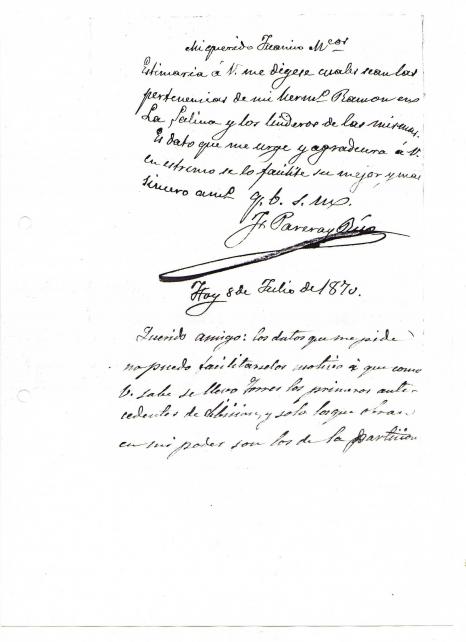 Mi querido Juanico M.cos
Estimaria á V. me digese cuales sean las
pertenencias de mi herm.o Ramon en
La Salina y los linderos de las mismas.
Es dato que me urge y agradecera á V.
en estremo se lo facilite su mejor y mas
sincero am.o q. b. s. m.
Hoy 8 de Julio de 1870.
Querido amigo: los datos que me pide
no puedo facilitarselos motivo á que como
V. sabe se llevo Torres los primeros ante-
cedentes de division, y solo los que obran
en mi poder son los de la particion